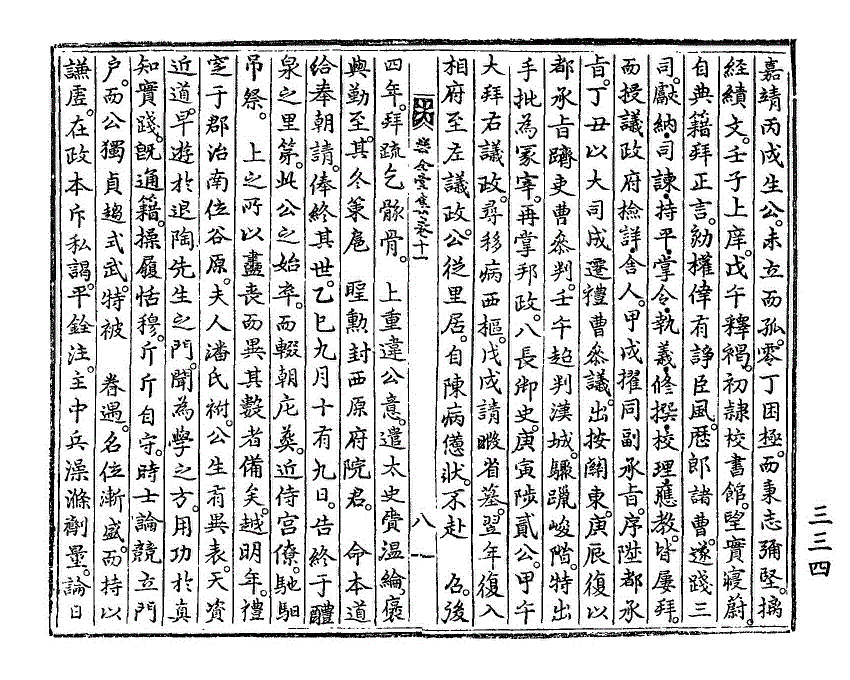 嘉靖丙戌生公。未立而孤。零丁困極。而秉志彌堅。摛
經績文。壬子上庠。戊午釋褐。初隷校書館。望實寖蔚。
自典籍拜正言。劾權倖有諍臣風。歷郞諸曹。遂踐三
司。獻納,司諫,持平,掌令,執義,修撰,校理,應敎。皆屢拜。
而授議政府撿詳,舍人。甲戌擢同副承旨。序陞都承
旨。丁丑以大司成遷禮曹參議。出按關東。庚辰復以
都承旨躋吏曹參判。壬午超判漢城。驟躐峻階。特出
手批爲冢宰。再掌邦政。八長御史。庚寅陟貳公。甲午
大拜右議政。尋移病西樞。戊戌請暇省墓。翌年復入
相府至左議政。公從里居。自陳病憊狀。不赴 召。後
樂全堂集卷十一 八
四年。拜疏乞骸骨。 上重違公意。遣太史賚溫綸。褒
典勤至。其冬策扈 聖勳封西原府院君。 命本道
給奉朝請。俸終其世。乙巳九月十有九日。告終于醴
泉之里第。此公之始卒。而輟朝庀葬。近侍宮僚。馳馹
吊祭。 上之所以盡喪而異其數者備矣。越明年。禮
窆于郡治南位谷原。夫人潘氏祔。公生有異表。天資
近道。早遊於退陶先生之門。聞爲學之方。用功於眞
知實踐。旣通籍。操履恬穆。斤斤自守。時士論競立門
戶。而公獨貞趨式武。特被 眷遇。名位漸盛。而持以
謙虛。在政本斥私謁。平銓注。主中兵澡滌劑量。論日
三三四